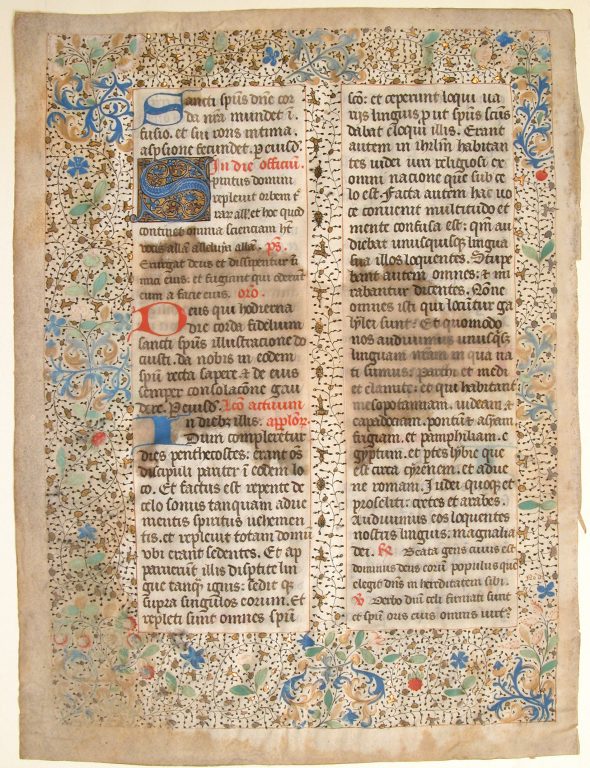 Sancti spūs dñe cor
da nr̄a mundet ī
fusio. et sui roris intima
aspsione fecundet. P eiusd.
In die officiū.
Spiritus domini
repleuit orbem t̄
rarꝝ all'. et hoc quod
continet omnia scienciam ht̄
uocis all'a alleluia all'a. ps̄.
Exurgat deus et dissipentur ī
mici eius: et fugiant qui oderūt
eum a facie eius. oro.
Deus qui hodierna
die corda fidelium
sancti spūs illustracione do
cuisti. da nobis in eodem
spū recta sapere. & de eius
semper consolacōne gau
dere. P eiusd. Lcō actuum
In dieb; illis. apl'oꝝ.
Dum complerētur
dies penthecostes: erant oēs
discipuli pariter ī eodem lo
co. Et factus est repente de
celo sonus tanquam adue
nientis spiritus uehemen
tis. et repleuit totam domū
vbi erant sedentes. Et ap
paruerūt illis dispertite lin
gue tanq̄ ignis: sedit q;
supra singulos eorum. Et
repleti sunt omnes spū
scō: et ceperunt loqui ua
riis linguis, put spūs scūs
dabat eloqui illis. Erant
autem in ihrlm habitan
tes iudei uiri religiosi ex
omni nacione que sub ce
lo est. Facta autem hac uo
ce conuenit multitudo et
mente confusa est: qm̄ au
diebat unusquisq; lingua
sua illos loquentes. Stupe
bant autem omnes: & mi
rabantur dicentes. Nōne
omnes isti qui locūtur ga
lylei sunt? Et quomodo
nos audiuimus unusq;
linguam nr̄am in qua na
ti sumus? Parthi et medi
et elamite: et qui habitant
mesopotamiam. iudeam &
capadociam. pontū & asyam
frigiam. et pamphiliam. e
gyptum. et ptes lybie que
est circa cyrenem. et adue
ne romani. Iudei quoq; et
proseliti: cretes et arabes.
Audiuimus eos loquentes
nostris linguis: magnalia
dei. R̄ Beata gens cuius est
dominus deus eorū populus quē
elegit dn̄s in hereditatem sibi.
V̄ Verbo dn̄i celi firmati sunt
et spū oris eius omnis uirt9